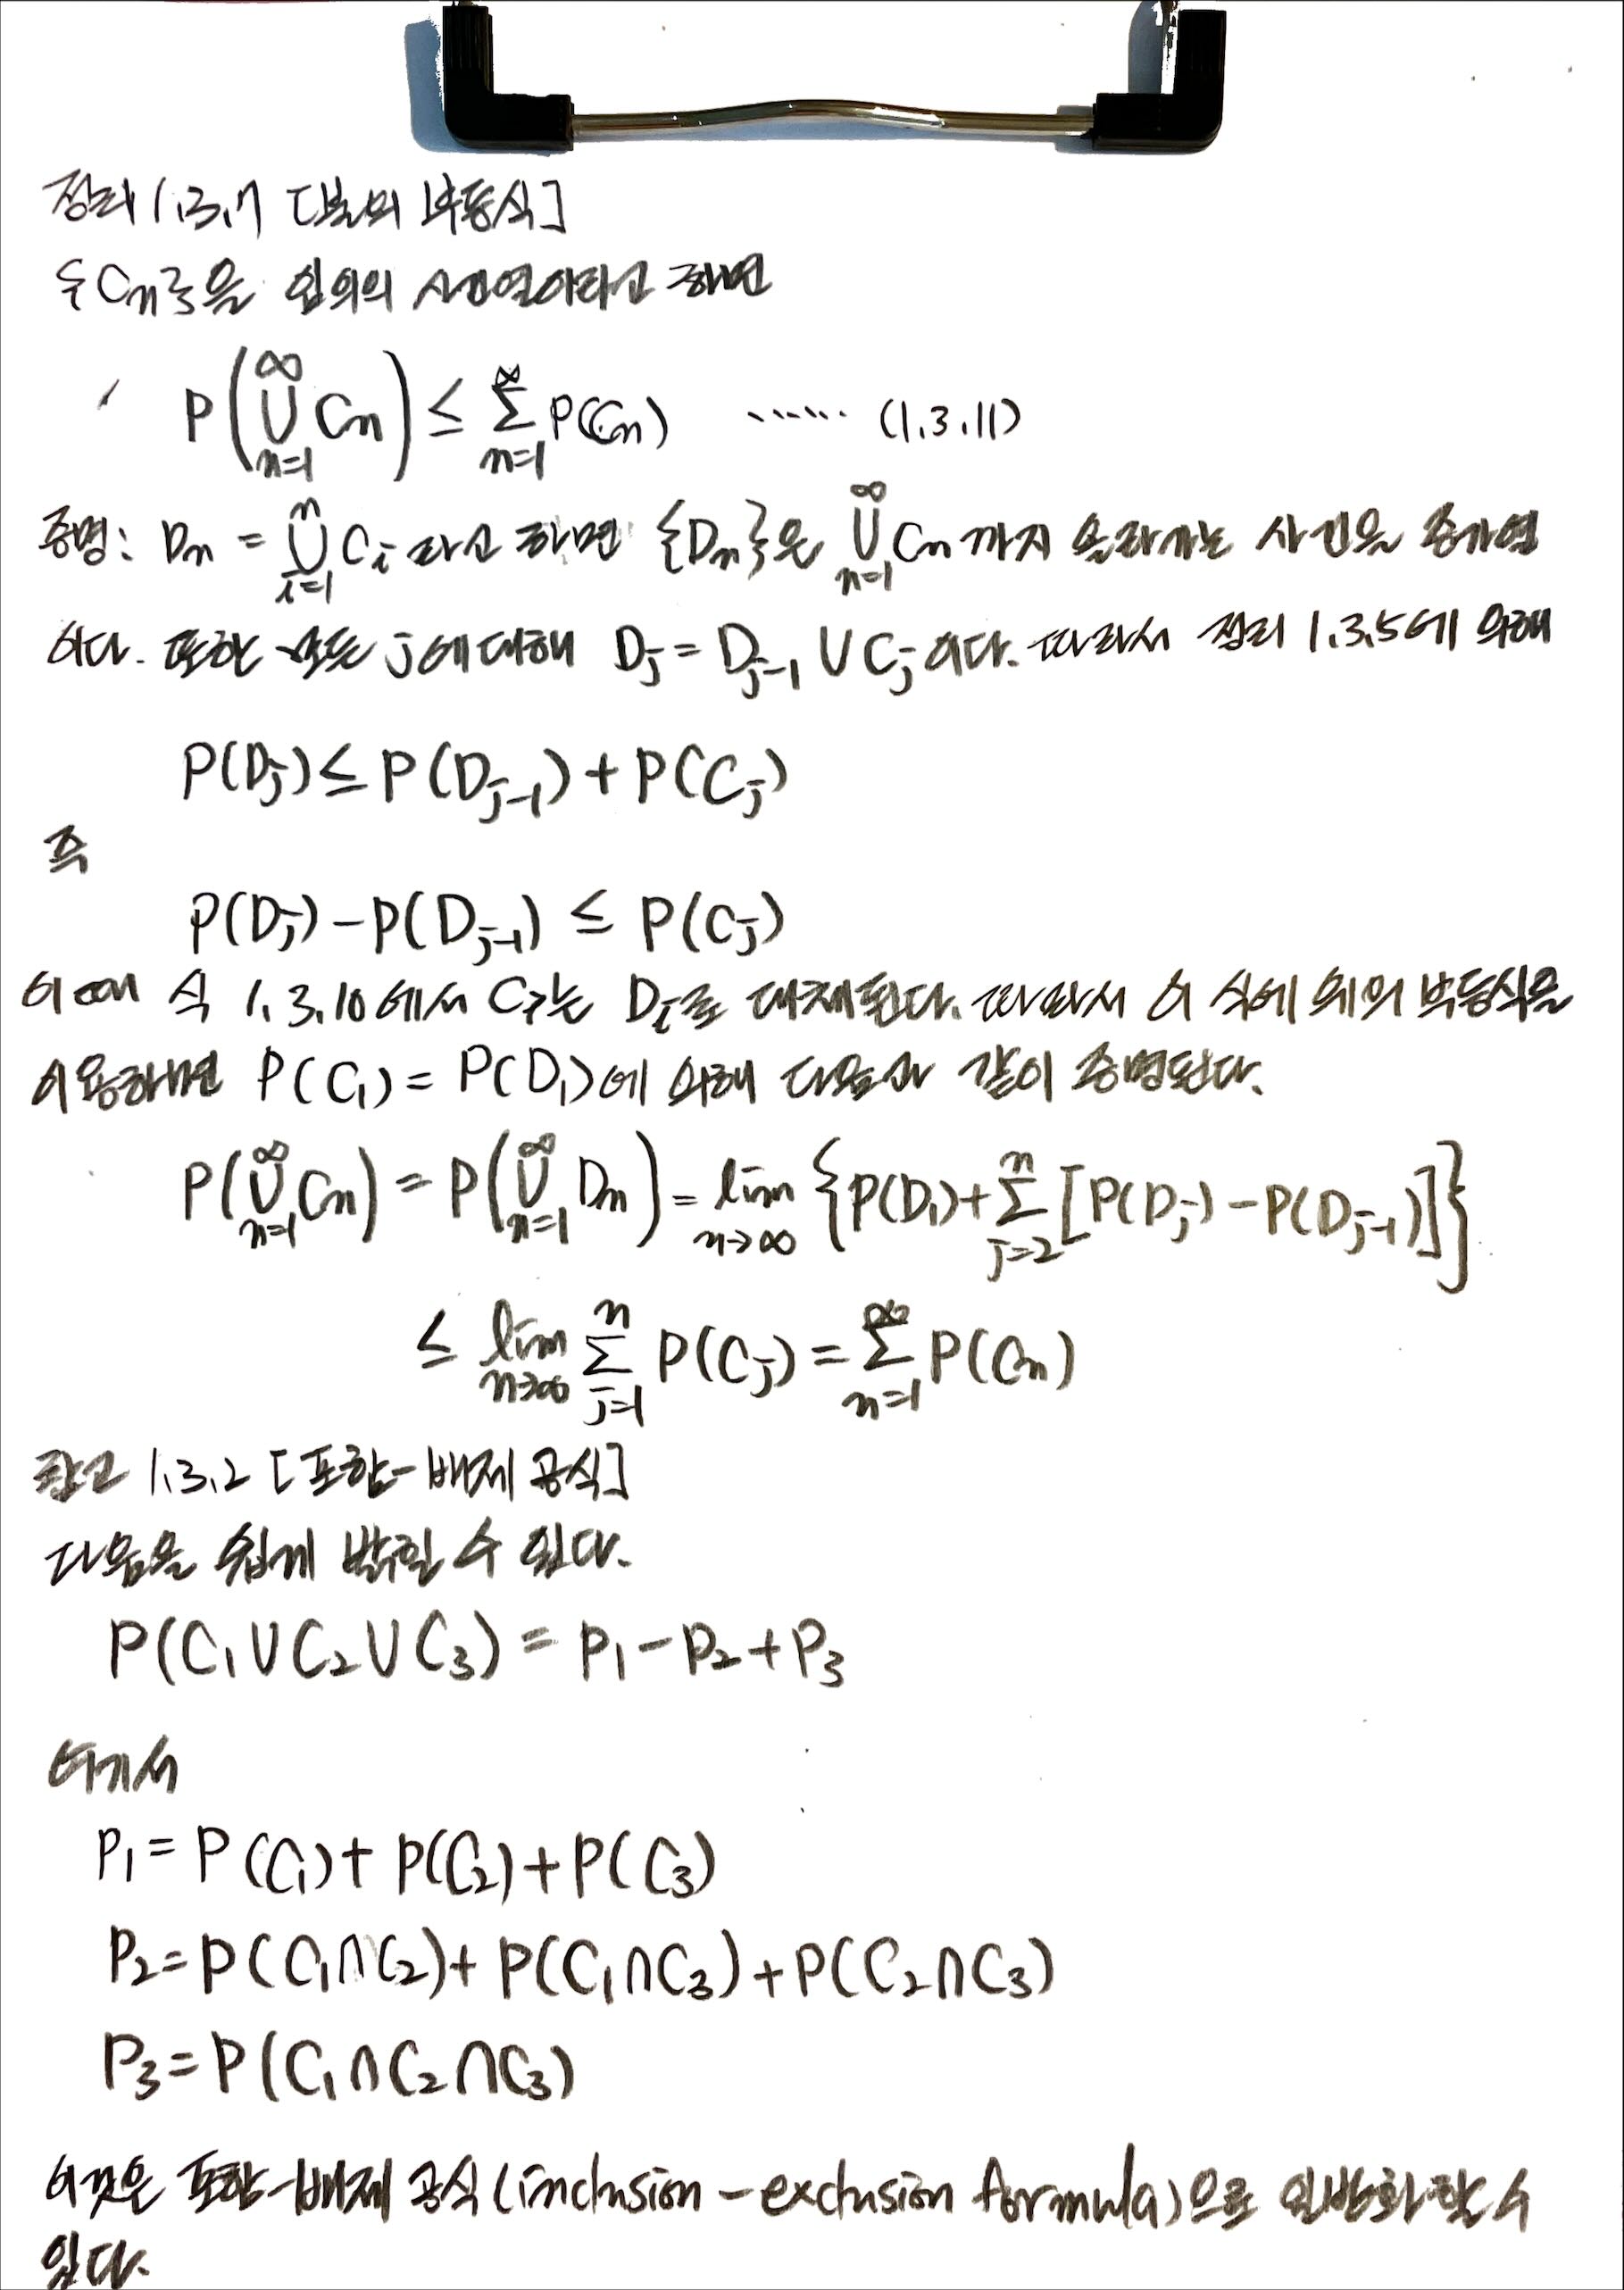 정리 1.3.7 [불의 부등식]
{Cn}을 임의의 사건열이라고 하면
P(∪_{n=1}^{∞} Cn) ≤ Σ_{n=1}^{∞} P(Cn) ...... (1.3.11)
증명: Dn = ∪_{i=1}^{n} Ci 라고 하면 {Dn}은 ∪_{n=1}^{∞} Cn 까지 올라가는 사건을 증가열
이다. 또한 모든 j에 대해 Dj = Dj-1 ∪ Cj 이다. 따라서 정리 1.3.5에 의해
P(Dj) ≤ P(Dj-1) + P(Cj)
즉
P(Dj) - P(Dj-1) ≤ P(Cj)
이때 식 1.3.10에서 Ci는 Di로 대체된다. 따라서 이 식에 위의 부등식을
이용하면 P(C1) = P(D1)에 의해 다음과 같이 증명된다.
P(∪_{n=1}^{∞} Cn) = P(∪_{n=1}^{∞} Dn) = lim_{n→∞} {P(D1) + Σ_{j=2}^{n} [P(Dj) - P(Dj-1)]}
≤ lim_{n→∞} Σ_{j=1}^{n} P(Cj) = Σ_{n=1}^{∞} P(Cn)
참고 1.3.2 [포함-배제 공식]
다음을 쉽게 밝힐 수 있다.
P(C1 ∪ C2 ∪ C3) = P1 - P2 + P3
여기서
P1 = P(C1) + P(C2) + P(C3)
P2 = P(C1 ∩ C2) + P(C1 ∩ C3) + P(C2 ∩ C3)
P3 = P(C1 ∩ C2 ∩ C3)
이것은 포함-배제 공식(inclusion-exclusion formula)으로 일반화할 수
있다.